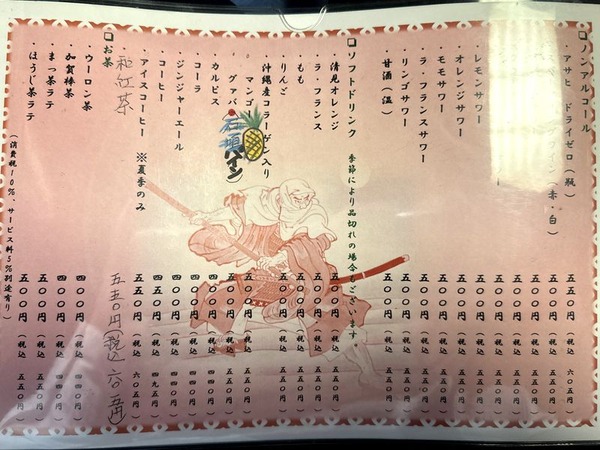 □ノンアルコール
・アサヒ ドライゼロ(瓶) 五五〇円(税込 六〇五円)
ワイン(赤・白) 五〇〇円(税込 五五〇円)
五〇〇円(税込 五五〇円)
五〇〇円(税込 五五〇円)
・レモンサワー 五〇〇円(税込 五五〇円)
・オレンジサワー 五〇〇円(税込 五五〇円)
・モモサワー 五〇〇円(税込 五五〇円)
・ラ・フランスサワー 五〇〇円(税込 五五〇円)
・リンゴサワー 五〇〇円(税込 五五〇円)
・甘酒(温) 五〇〇円(税込 五五〇円)
□ソフトドリンク 季節により品切れの場合もございます。
・清見オレンジ 五〇〇円(税込 五五〇円)
・ラ・フランス 五〇〇円(税込 五五〇円)
・もも 五〇〇円(税込 五五〇円)
・りんご 五〇〇円(税込 五五〇円)
沖縄産コラーゲン入り
・マンゴー 五〇〇円(税込 五五〇円)
・グァバ 石垣パイン 五〇〇円(税込 五五〇円)
・カルピス 四〇〇円(税込 四四〇円)
・コーラ 四〇〇円(税込 四四〇円)
・ジンジャーエール 四〇〇円(税込 四四〇円)
・コーヒー 四五〇円(税込 四九五円)
・アイスコーヒー ※夏季のみ 五五〇円(税込 六〇五円)
和紅茶 五五〇円(税込 六〇五円)
□お茶
・ウーロン茶 四〇〇円(税込 四四〇円)
・加賀棒茶 四〇〇円(税込 四四〇円)
・まっ茶ラテ 五〇〇円(税込 五五〇円)
・ほうじ茶ラテ 五〇〇円(税込 五五〇円)
(消費税10%、サービス料5%別途有り)